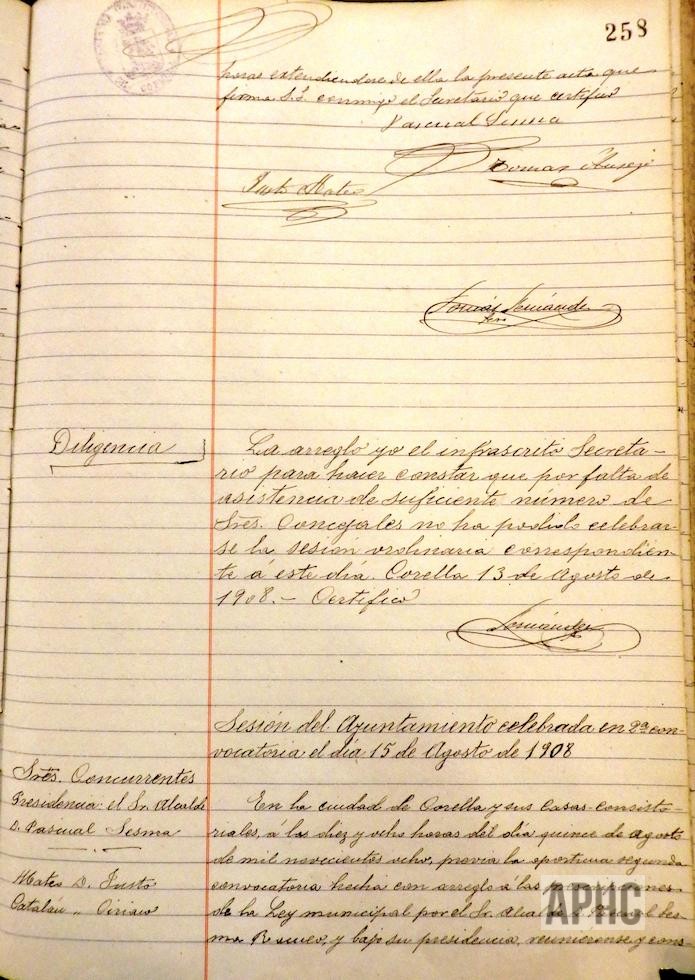 258
horas extendiendose de ella la presente acta que
firma S.S. conmigo el Secretario que certifico
Pascual Sesma
Tomas
Justo Mateo
Diligencia
La arreglo yo el infrascrito Secreta-
rio para hacer constar que por falta de
asistencia de suficiente número de
Sres. Concejales no ha podido celebrar-
se la sesión ordinaria correspondien-
te á este día. Corella 13 de Agosto de
1908.- Certifico
Sesión del Ayuntamiento celebrada en 2ª con-
vocatoria el día 15 de Agosto de 1908
Sres. Concurrentes
Presidencia: el Sr. Alcalde
D. Pascual Sesma
Mateo D. Justo
Catalán " Ciriaco
En la ciudad de Corella y sus Casas-consisto-
riales, á las diez y ocho horas del día quince de agosto
de mil novecientos ocho, previa la oportuna segunda
convocatoria hecha con arreglo á las
de la Ley municipal por el Sr. Alcalde D. Pascual Ses-
ma y bajo su presidencia, reuniéronse y cons-
APHC